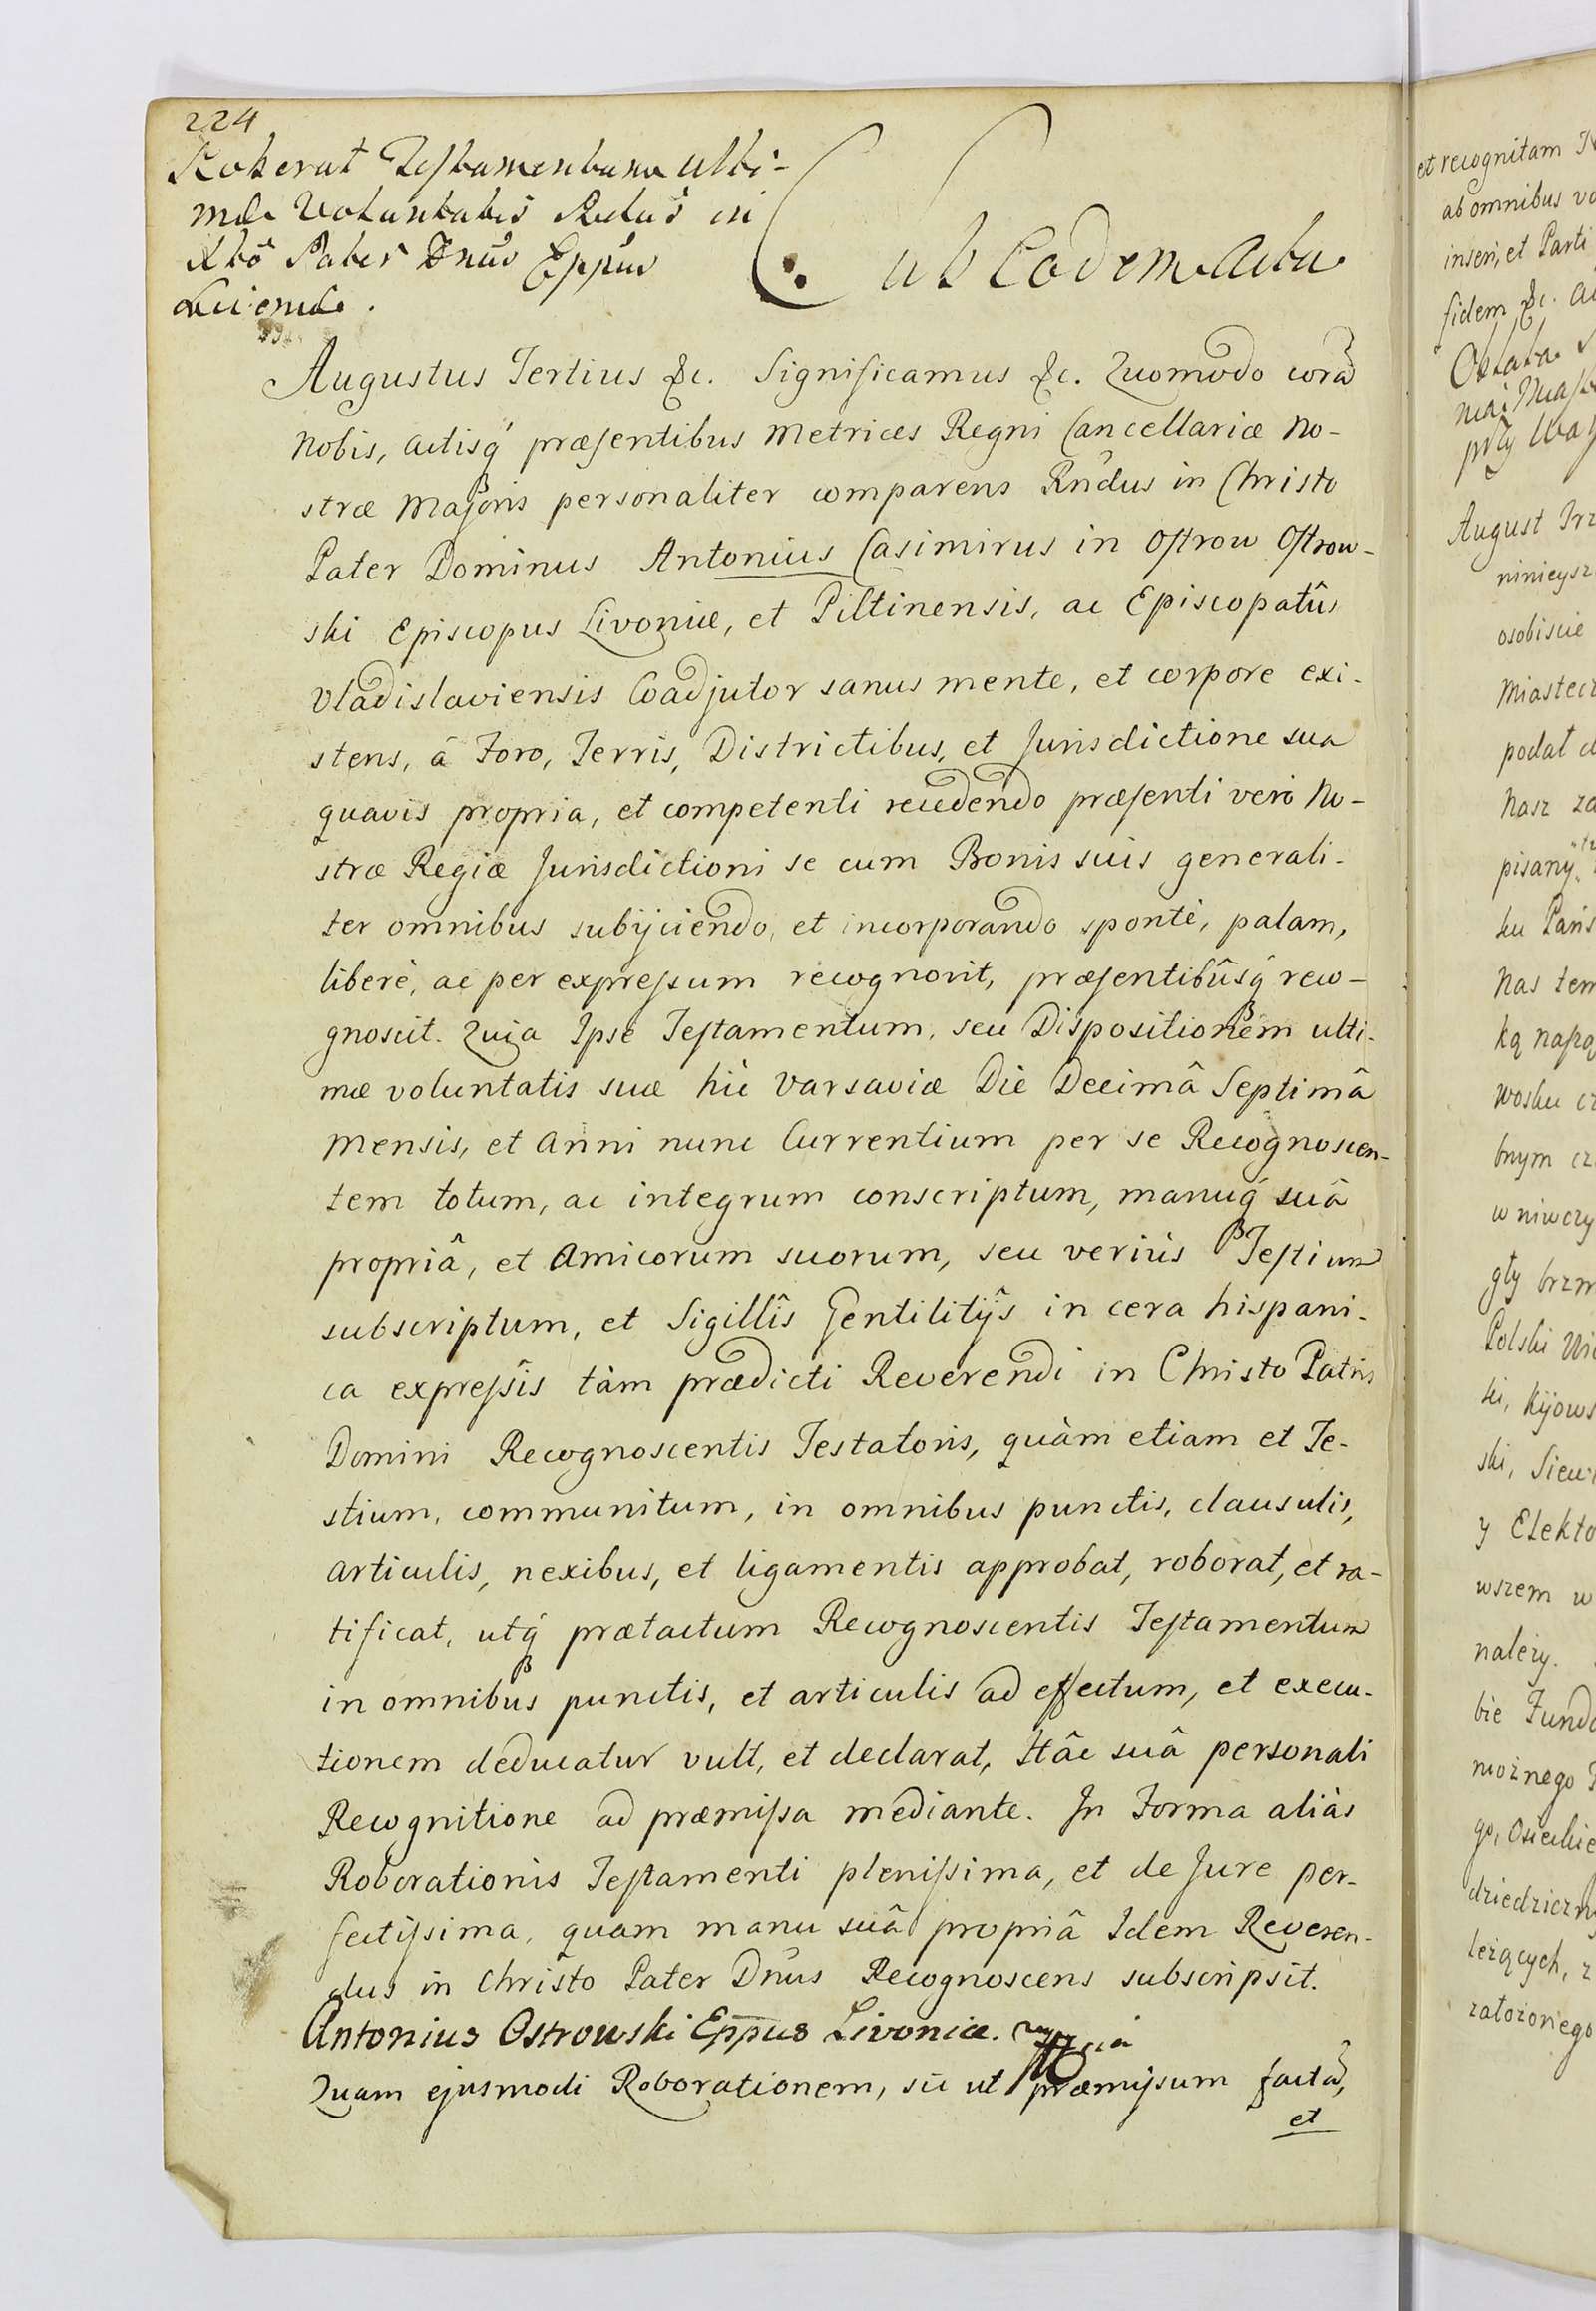 224
Roborat Testamentum ulti-
mæ Voluntatis Rndus in
Xtō Pater Dnūs Eppus
Livoniæ.
Sub Eodem Actu
Augustus Tertius &c. Significamus &c. Quomodo corā
Nobis, Actisq́ præsentibus Metrices Regni Cancellariæ No-
stræ Majoris personaliter comparens Rñdus in Christo
Pater Dominus Antonius Casimirus in Ostrow Ostrow-
ski Episcopus Livoniæ, et Piltinensis, ac Episcopatûs
Vladislaviensis Coadjutor sanus mente, et corpore exi-
stens, â Foro, Terris, Districtibus, et Jurisdictione sua
quavis propria, et competenti recedendo præsenti verò No-
stræ Regiæ Jurisdictioni se cum Bonis suis generali-
ter omnibus subijciendo, et incorporando spontè, palam,
liberè, ac per expressum recognovit, præsentibûsq́ reco-
gnoscit. Quia Ipse Testamentum, seu Dispositionem ulti-
mæ voluntatis suæ hìc Varsaviæ Die Decimâ Septimâ
Mensis, et Anni nunc Currentium per se Recognoscen-
tem totum, ac integrum conscriptum, manuq́ suâ
propriâ, et Amicorum suorum, seu veriùs Testium
subscriptum, et Sigillîs Gentilitijs in cera hispani-
ca expressîs tàm prædicti Reverendi in Christo Patris
Domini Recognoscentis Testatoris, quàm etiam et Te-
stium, communitum, in omnibus punctis, clausulis,
Articulis, nexibus, et ligamentis approbat, roborat, et ra-
tificat, utq́ prætactum Recognoscentis Testamentum
in omnibus punctis, et articulis ad effectum, et execu-
tionem deducatur vult, et declarat, Hâc suâ personali
Recognitione ad præmissa mediante. In Forma aliàs
Roborationis Testamenti plenissima, et de Jure per-
fectissima, quam manu suâ propriâ Idem Reveren-
dus in Christo Pater Dñus Recognoscens subscripsit.
Antonius Ostrowski Eppus Livoniæ. mppria
Quam ejusmodi Roborationem, sic ut præmissum factā,
et
et recognitam
ab omnibus
inseri, et Parti
fidem &c.
Oblata
August
ninieysz
osobiscie
Miastecz
podał
Nasz
pisany
ku
Nas tem
ką
wosku
bnym
w niwczy
gły brzm
Polski
ki, Kijows
ski,
y Elekto
wszem w
należy.
bie Fund
możnego
go,
dziedziczn
leżących, z
założonego